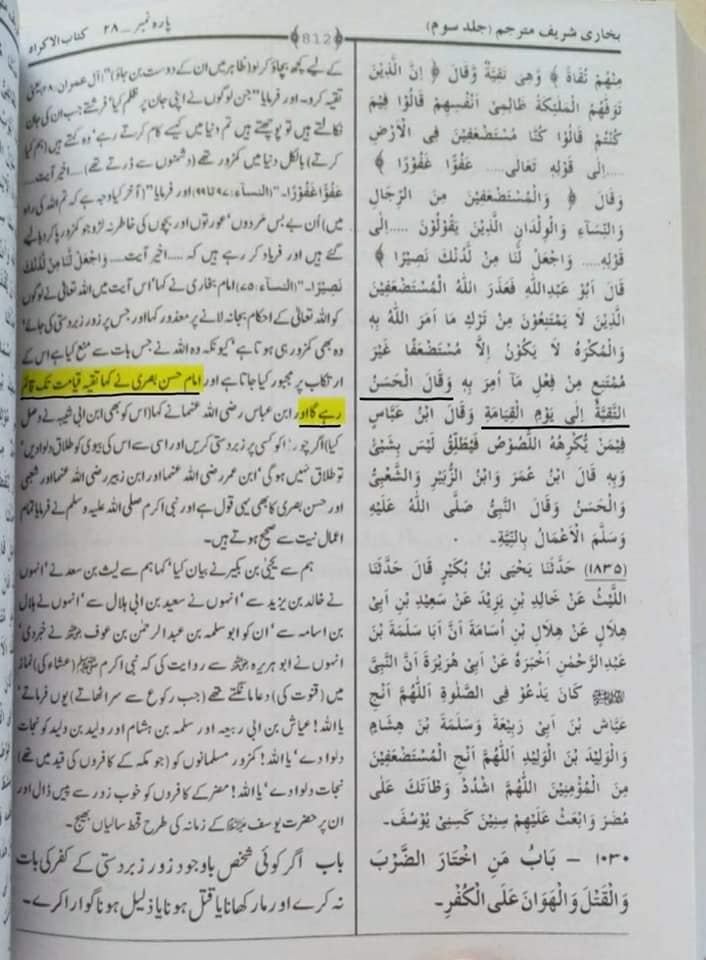 بخاری شریف مترجم (جلد سوم)
812
پارہ نمبر ۔ ۲۸ کتاب الاکراہ
مِنْهُمْ تُقَاةً ﴾ وَهِىَ تَقِيَّةٌ وَقَالَ ﴿ اِنَّ الَّذِيْنَ
تَوَفّٰهُمُ الْمَلٰٓئِكَةُ ظَالِمِيْٓ اَنْفُسِهِمْ قَالُوْا فِيْمَ
كُنْتُمْ قَالُوْا كُنَّا مُسْتَضْعَفِيْنَ فِى الْاَرْضِ
.... اِلٰى قَوْلِهٖ تَعَالٰى.... عَفُوًّا غَفُوْرًا ﴾
وَقَالَ ﴿ وَالْمُسْتَضْعَفِيْنَ مِنَ الرِّجَالِ
وَالنِّسَآءِ وَالْوِلْدَانِ الَّذِيْنَ يَقُوْلُوْنَ .... اِلٰى
قَوْلِهٖ..... وَاجْعَلْ لَّنَا مِنْ لَّدُنْكَ نَصِيْرًا ﴾
قَالَ اَبُوْ عَبْدِاللّٰهِ فَعَذَرَ اللّٰهُ الْمُسْتَضْعَفِيْنَ
الَّذِيْنَ لَا يَمْتَنِعُوْنَ مِنْ تَرْكِ مَا اَمَرَ اللّٰهُ بِهٖ
وَالْمُكْرَهُ لَا يَكُوْنُ اِلَّا مُسْتَضْعَفًا غَيْرَ
مُمْتَنِعٍ مِنْ فِعْلِ مَا اُمِرَ بِهٖ وَقَالَ الْحَسَنُ
التَّقِيَّةُ اِلٰى يَوْمِ الْقِيَامَةِ وَقَالَ ابْنُ عَبَّاسٍ
فِيْمَنْ يُكْرِهُهُ اللُّصُوْصُ فَيُطَلِّقُ لَيْسَ بِشَيْئٍ
وَبِهٖ قَالَ ابْنُ عُمَرَ وَابْنُ الزُّبَيْرِ وَالشَّعْبِيُّ
وَالْحَسَنُ وَقَالَ النَّبِيُّ صَلَّى اللّٰهُ عَلَيْهِ
وَسَلَّمَ الْاَعْمَالُ بِالنِّيَّةِ۔
(۱۸۳۵) حَدَّثَنَا يَحْيَى بْنُ بُكَيْرٍ قَالَ حَدَّثَنَا
اللَّيْثُ عَنْ خَالِدِ بْنِ يَزِيْدَ عَنْ سَعِيْدِ بْنِ اَبِيْ
هِلَالٍ عَنْ هِلَالِ بْنِ اُسَامَةَ اَنَّ اَبَا سَلَمَةَ بْنَ
عَبْدِالرَّحْمٰنِ اَخْبَرَهٗ عَنْ اَبِيْ هُرَيْرَةَ اَنَّ النَّبِيَّ
ﷺ كَانَ يَدْعُوْ فِى الصَّلٰوةِ اَللّٰهُمَّ اَنْجِ
عَيَّاشَ بْنَ اَبِيْ رَبِيْعَةَ وَسَلَمَةَ بْنَ هِشَامٍ
وَالْوَلِيْدَ بْنَ الْوَلِيْدِ اَللّٰهُمَّ اَنْجِ الْمُسْتَضْعَفِيْنَ
مِنَ الْمُؤْمِنِيْنَ اَللّٰهُمَّ اشْدُدْ وَطْاَتَكَ عَلٰى
مُضَرَ وَابْعَثْ عَلَيْهِمْ سِنِيْنَ كَسِنِيْ يُوْسُفَ۔
۱۰۳۰ – بَابُ مَنِ اخْتَارَ الضَّرْبَ
وَالْقَتْلَ وَالْهَوَانَ عَلَى الْكُفْرِ۔
کے لیے کچھ بچاؤ کر لو (ظاہر میں ان کے دوست بن جاؤ)" (آل عمران، ۲۸) یعنی
تقیہ کرو۔ اور فرمایا "جن لوگوں نے اپنی جان پر ظلم کیا' فرشتے جب ان کی جان
نکالتے ہیں تو پوچھتے ہیں تم دنیا میں کیسے کام کرتے رہے' وہ کہتے ہیں (ہم کیا
کرتے) بالکل دنیا میں کمزور تھے (دشمنوں سے ڈرتے تھے) .... اخیر آیت....
عَفُوًّا غَفُوْرًا۔" (النساء، ۹۷ تا ۹۹) اور فرمایا "(آخر کیا وجہ ہے کہ تم اللہ کی راہ
میں) اُن بے بس مَردوں' عورتوں اور بچوں کی خاطر نہ لڑو جو کمزور پا کر دبا لیے
گئے ہیں اور فریاد کر رہے ہیں کہ .... اخیر آیت.... وَاجْعَلْ لَّنَا مِنْ لَّدُنْكَ
نَصِيْرًا۔" (النساء، ۷۵) امام بخاری نے کہا' اس آیت میں اللہ تعالیٰ نے لوگوں
کو اللہ تعالیٰ کے احکام بجا نہ لانے پر معذور کہا اور جس پر زور زبردستی کی جائے'
وہ بھی کمزور ہی ہوتا ہے' کیونکہ وہ اللہ نے جس بات سے منع کیا ہے اس کے
ارتکاب پر مجبور کیا جاتا ہے اور امام حسن بصری نے کہا تقیہ قیامت تک قائم
رہے گا اور ابن عباس رضی اللہ عنہما نے کہا (اس کو بھی ابن ابی شیبہ نے وصل
کیا) اگر چور' ڈاکو کسی پر زبردستی کریں اور اسی سے اس کی بیوی کو طلاق دلوا دیں'
تو طلاق نہیں ہو گی' ابن عمر رضی اللہ عنہما اور ابن زبیر رضی اللہ عنہما اور شعبی
اور حسن بصری کا بھی یہی قول ہے اور نبی اکرم صلی اللہ علیہ و سلم نے فرمایا تمام
اعمال نیت سے صحیح ہوتے ہیں۔
ہم سے یحییٰ بن بکیر نے بیان کیا' کہا ہم سے لیث بن سعد نے' انہوں
نے خالد بن یزید سے' انہوں نے سعید بن ابی ہلال سے' انہوں نے ہلال
بن اسامہ سے' ان کو ابو سلمہ بن عبد الرحمٰن بن عوف نے خبر دی'
انہوں نے ابو ہریرہ سے روایت کی کہ نبی اکرم ﷺ (عشاء کی) نماز
میں (قنوت کی) دعا مانگتے تھے (جب رکوع سے سر اٹھاتے) یوں فرماتے'
یا اللہ! عیاش بن ابی ربیعہ اور سلمہ بن ہشام اور ولید بن ولید کو نجات
دلوا دے' یا اللہ! کمزور مسلمانوں کو (جو مکہ کے کافروں کی قید میں تھے)
نجات دلوا دے' یا اللہ! مضر کے کافروں کو خوب زور سے پیس ڈال اور
ان پر حضرت یوسف کے زمانہ کی طرح قحط سالیاں بھیج۔
باب اگر کوئی شخص باوجود زور زبردستی کے کفر کی بات
نہ کرے اور مار کھانا یا قتل ہونا یا ذلیل ہونا گوارا کرے۔